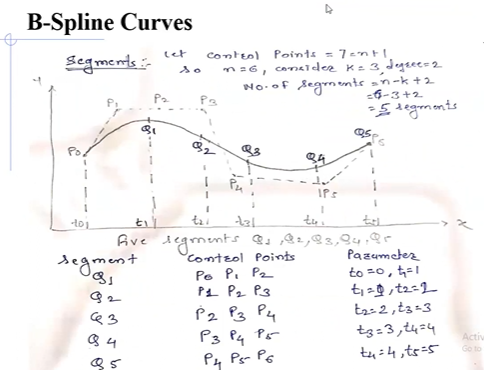 B-Spline Curves
Segments :- Let control Points = 7 = n+1
so n=6, consider k=3, degree=2
No. of segments = n-k+2
= 6-3+2
= 5 segments
Y
P1 P2 P3
Q1
Q2 Q3 Q4 Q5
P0 P6
P4 P5
t0 t1 t2 t3 t4 t5 x
five segments Q1, Q2, Q3, Q4, Q5
segment Control Points Parameter
Q1 P0 P1 P2 t0=0, t1=1
Q2 P1 P2 P3 t1=1, t2=2
Q3 P2 P3 P4 t2=2, t3=3
Q4 P3 P4 P5 t3=3, t4=4
Q5 P4 P5 P6 t4=4, t5=5
Activ
Go to